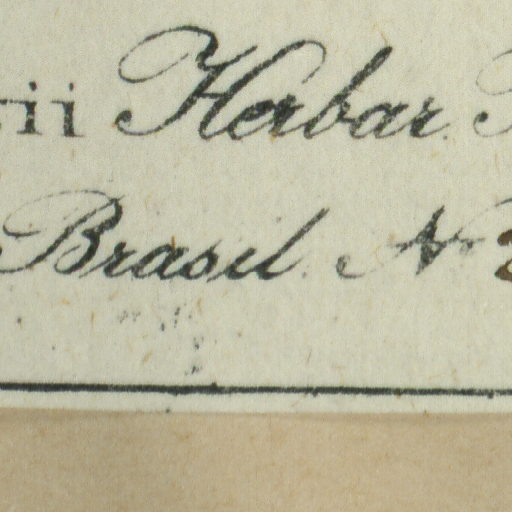 ii Herbar.
Brasil. N